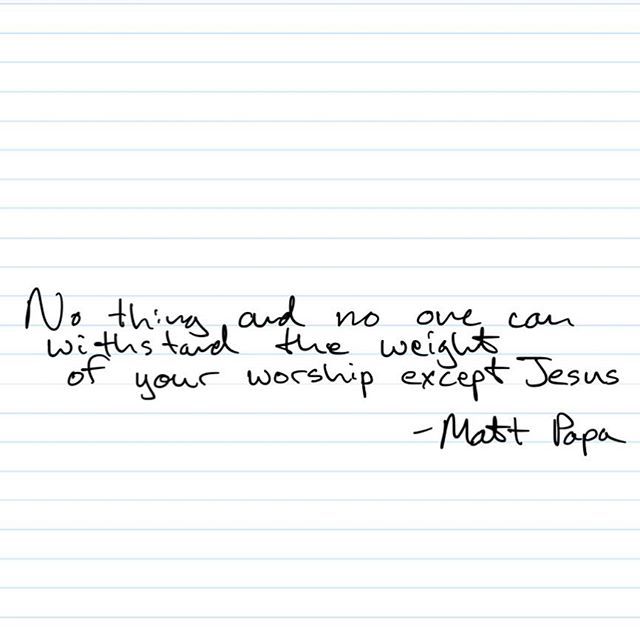 No thing and no one can
withstand the weight
of your worship except Jesus
-Matt Papa